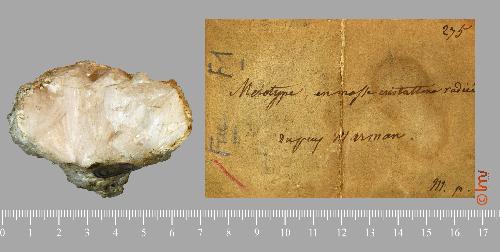 275
F1
Mesotype en masse cristalline radiée
M. p.
© lmv
0 1 2 3 4 5 6 7 8 9 10 11 12 13 14 15 16 17